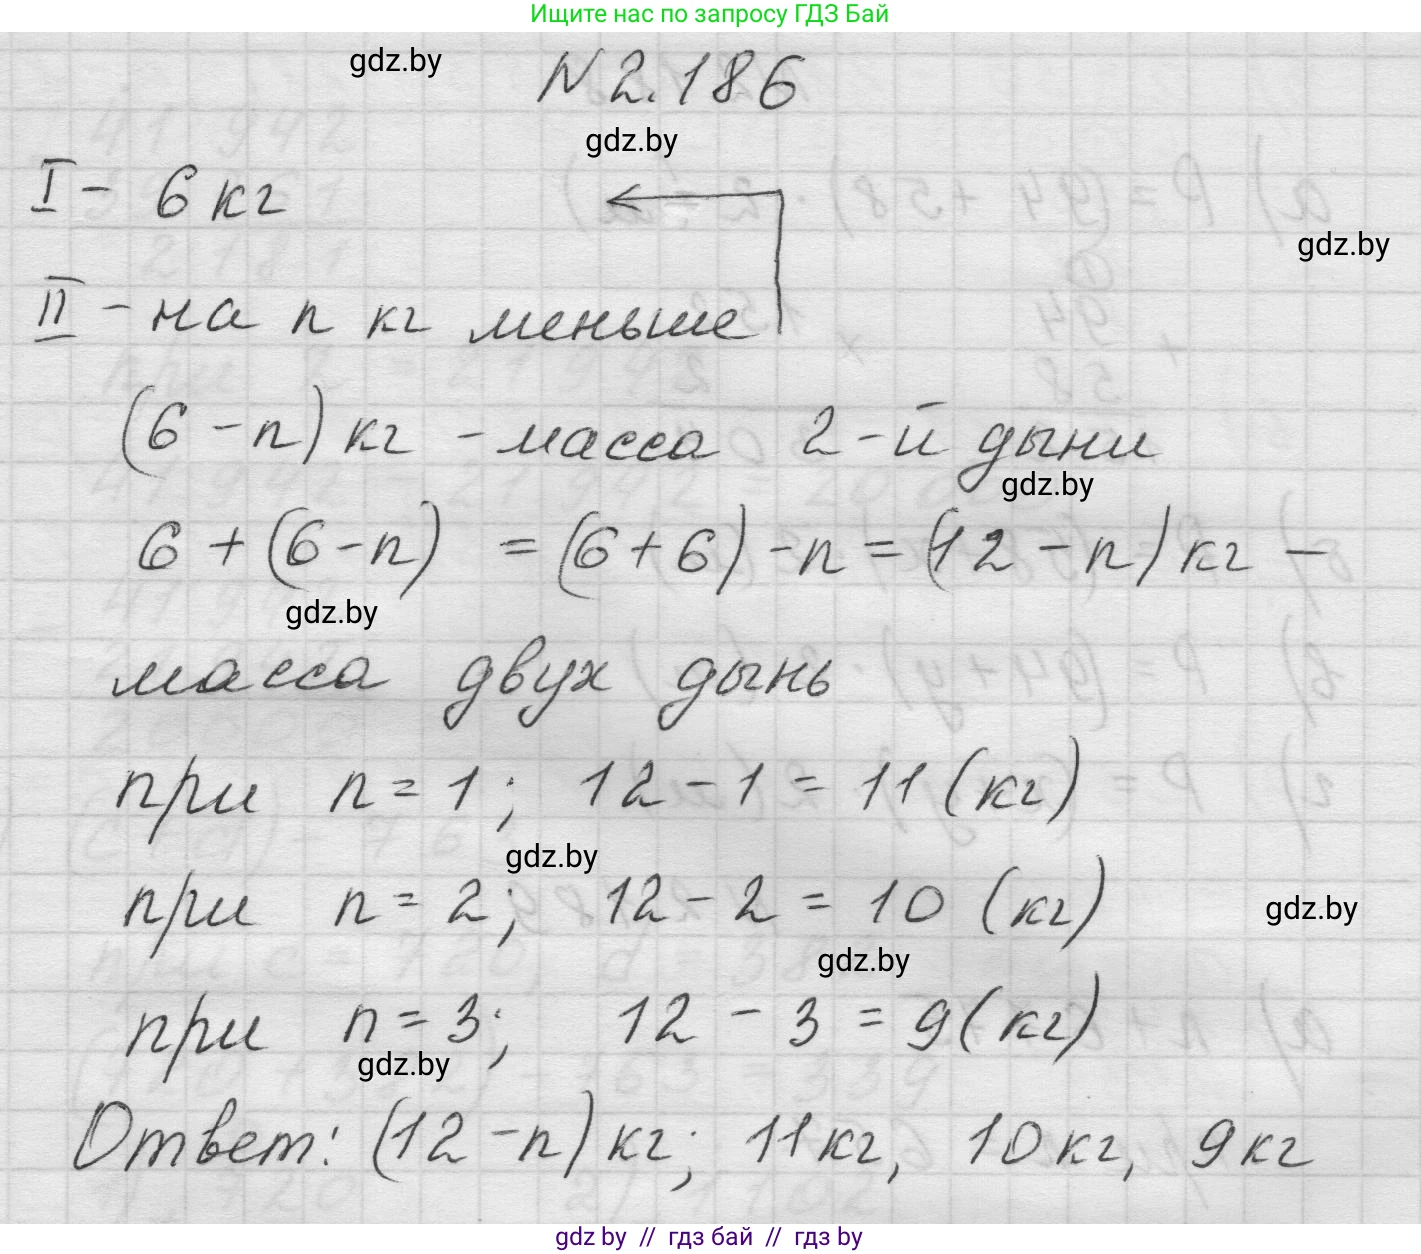 Ищите нас по запросу ГДЗ Бай
gdz.by
N 2.186
gdz.by
I - 6 кг
gdz.by
II - на n кг меньше
(6 - n) кг - масса 2-й дыни
gdz.by
6 + (6 - n) = (6 + 6) - n = (12 - n) кг -
gdz.by
масса двух дынь
при n = 1; 12 - 1 = 11 (кг)
gdz.by
при n = 2; 12 - 2 = 10 (кг)
gdz.by
gdz.by
при n = 3; 12 - 3 = 9 (кг)
gdz.by
Ответ: (12 - n) кг; 11 кг, 10 кг, 9 кг
gdz.by // гдз бай // гдз by